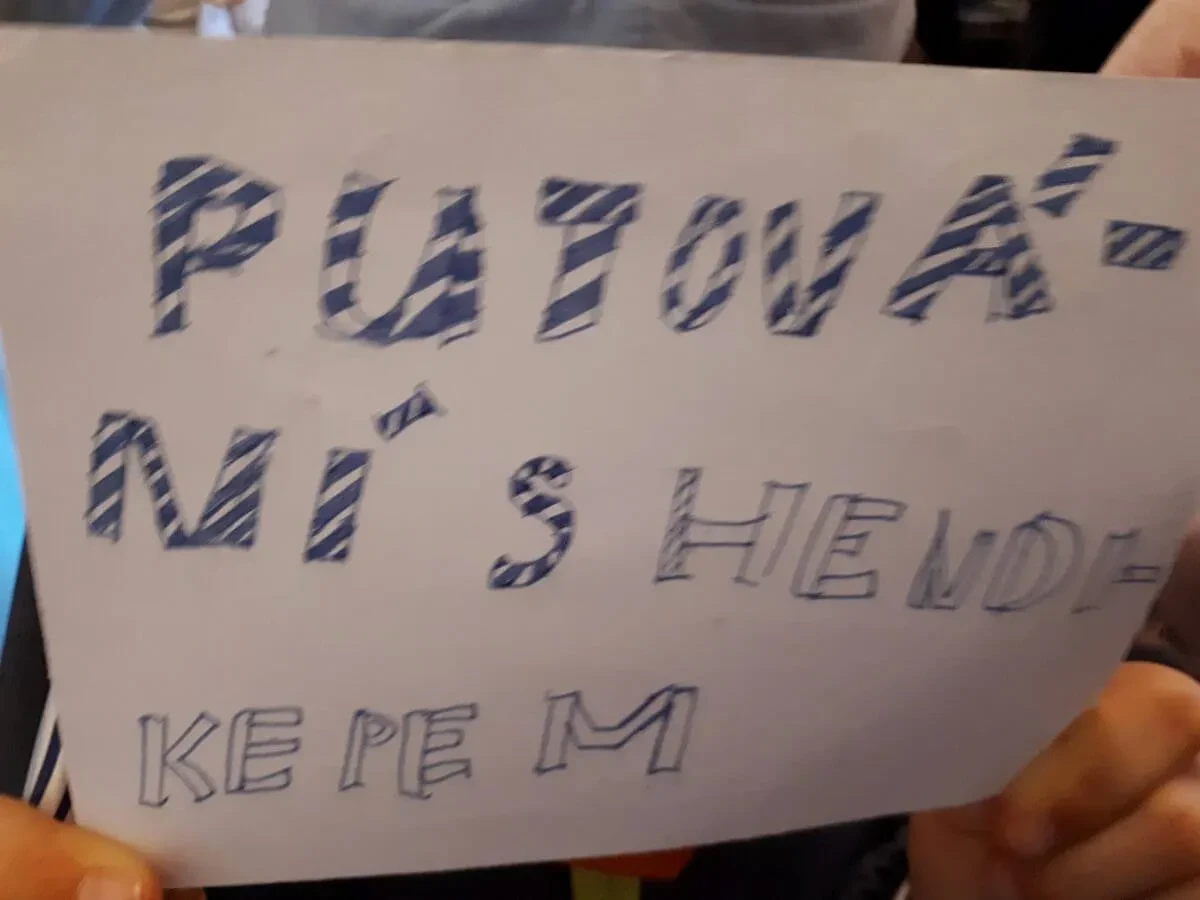 PUTOVÁ-
NÍ S HENDI-
KEPEM